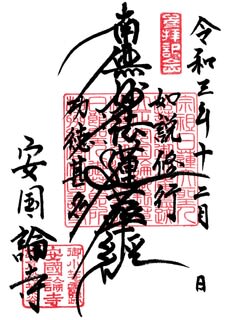 参拝記念
令和三年十二月 日
如説修行
南無妙法蓮華経
功徳甚多
安国論寺
安國論寺